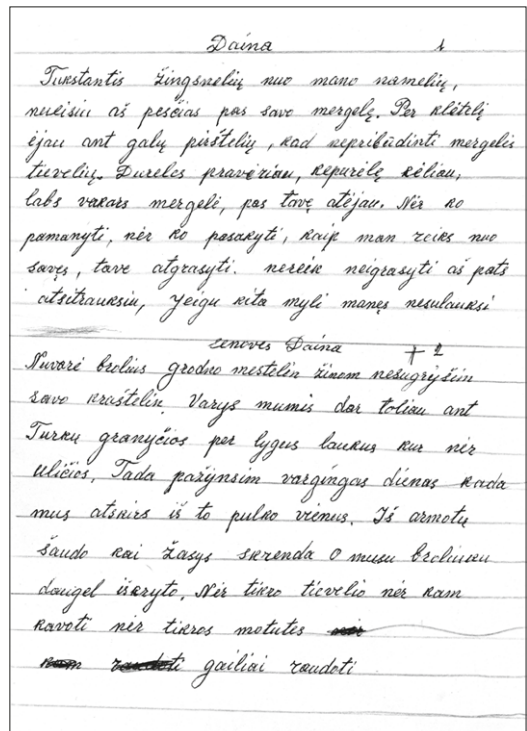 Daina 1
Tukstantis žingsnelių nuo mano namelių,
nueisiu aš pesčias pas savo mergelę. Per klėtelį
ėjau ant galų pirštelių, kad nepribudinti mergelės
tievelių. Dureles pravėriau, kepurėlę kėliau,
labs vakars mergelė, pas tavę atėjau. Nėr ko
pamanyti, nėr ko pasakyti, kaip man reiks nuo
savęs, tave atgrasyti. nereik neigrasyti aš pats
atsitrauksiu, jeigu kita myli manęs nesulauksi
senoves Daina + 2
Nuvarė brolius grodno mestelin žinom nesugryšim
savo kraštelin. Varys mumis dar toliau ant
Turku granyčios per lygus laukus kur nėr
uličios, Tada pažynsim vargingas dienas kada
mus atskirs iš to pulko vienus. Iš armotų
šaudo kai žasys skrenda o musu broliuku
daugel iškryto. Nėr tikro tievelio nėr kam
kavoti nėr tikros motutės
gailiai raudoti